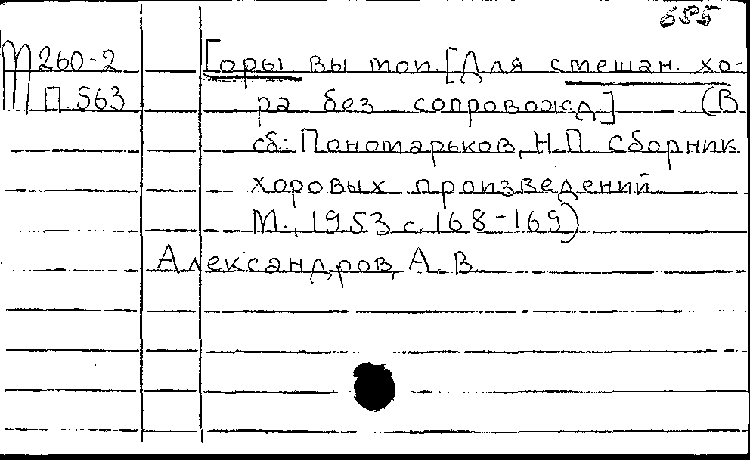 685
М260-2 Горы вы мои. [Для смешан. хо-
П 563 ра без сопровожд.] (В
сб: Пономарьков, Н.П. Сборник
хоровых произведений
М., 1953 с. 168-169)
Александров, А. В.